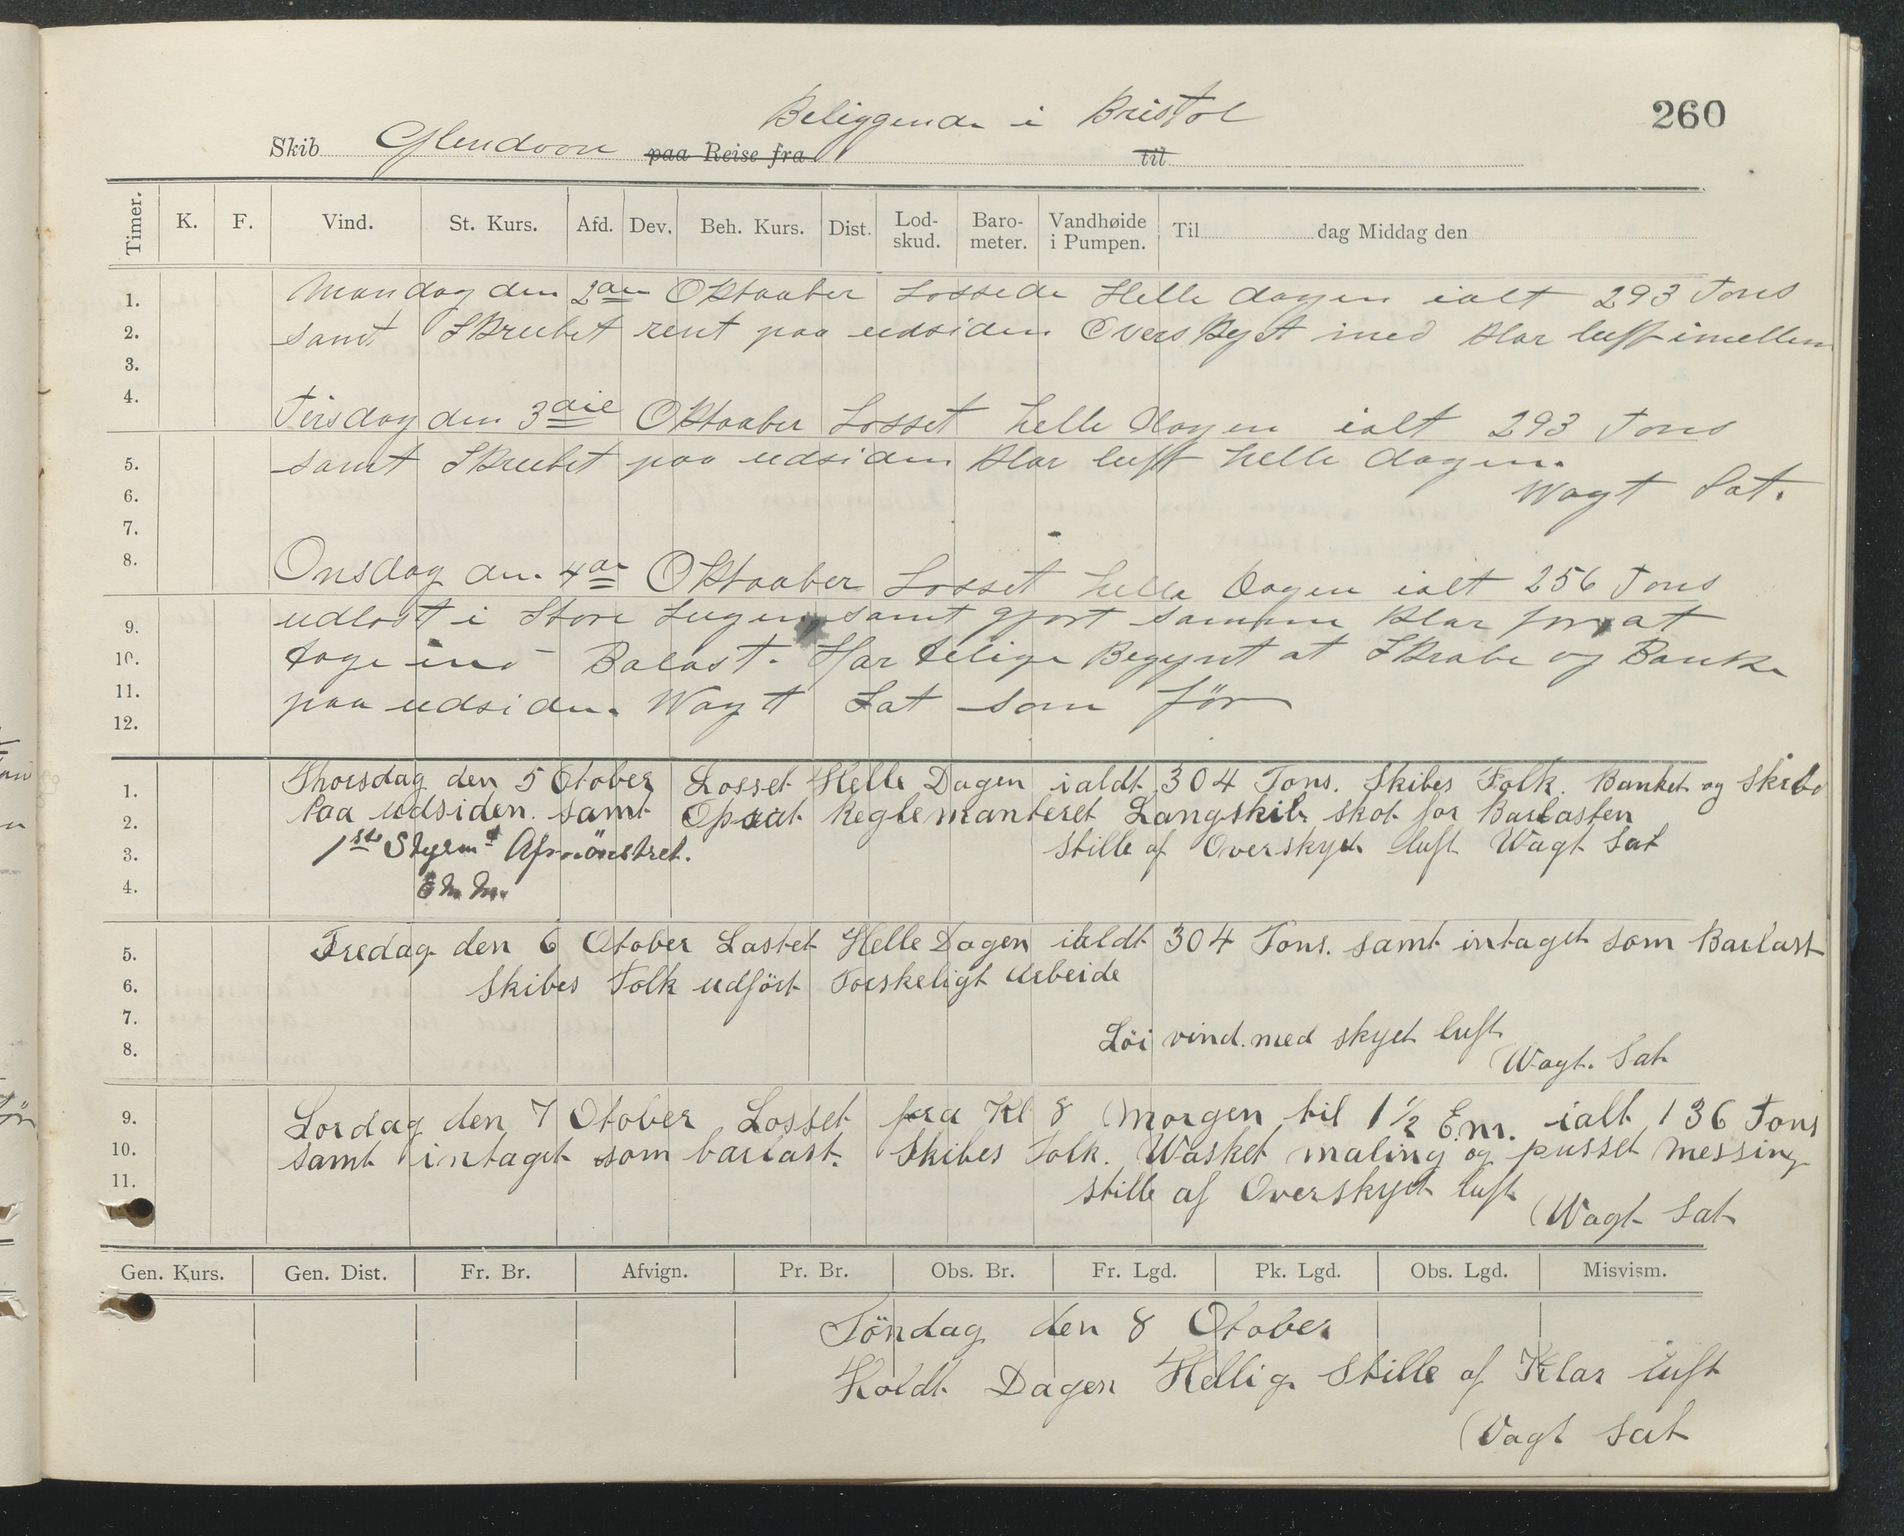 260
Beliggende i Bristol
Skib Glendoon paa Reise fra til
Timer. K. F. Vind. St. Kurs. Afd. Dev. Beh. Kurs. Dist. Lod-skud. Baro-meter. Vandhøide i Pumpen. Til dag Middag den
1. Mandag den 2den Oktaaber Lossede Helle dagen ialt 293 Tons
2. samt Skrubet rent paa udsiden Overskyet med klar luft imellem
3.
4. Tirsdag den 3die Oktaaber Losset helle dagen ialt 293 Tons
5. samt Skrubet paa udsiden klar luft helle dagen.
6. Wagt Sat.
7.
8. Onsdag den 4de Oktaaber Losset helle Dagen ialt 256 Tons
9. udlost i Store Lugen samt gjort samme klar for at
10. tage ind Balast. Har telige Begynt at Skrabe og Banke
11. paa udsiden. Wagt Sat som før
12.
1. Thorsdag den 5 Otober Losset Helle Dagen ialdt 304 Tons. Skibes Folk. Banket og Skrabe
2. Paa udsiden. samt Opsat Reglemanteret Langskibs skot for Barlasten
3. 1ste Styrmd Afmönstret. stille af Overskyet luft Wagt Sat
4. E M M.
5. Fredag den 6 Otober Lastet Helle Dagen ialdt 304 Tons. samt intaget som Barlast
6. Skibes Folk udfört Forskeligt Arbeide
7. Löi vind. med skyet luft
8. Wagt. Sat
9. Lordag den 7 Otober Losset fra Kl 8 Morgen til 1 1/2 E.m. ialt 136 Tons
10. samt intaget som barlast. Skibes Folk. Wasket maling og pusset Messing
11. stille af Overskyet luft
Wagt Sat
Gen. Kurs. Gen. Dist. Fr. Br. Afvign. Pr. Br. Obs. Br. Fr. Lgd. Pk. Lgd. Obs. Lgd. Misvism.
Söndag den 8 Otober
Holdt Dagen Hellig. Stille af Klar luft
Vagt Sat